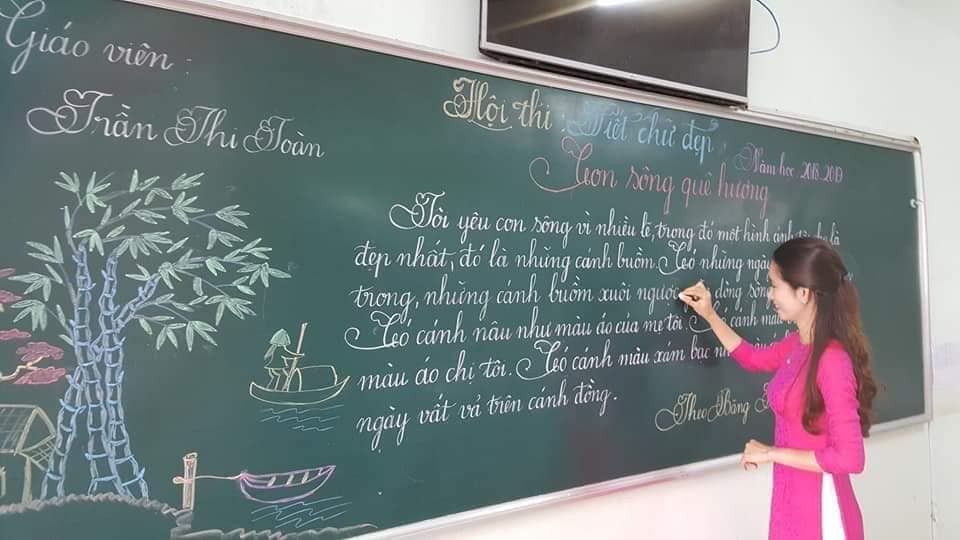 Giáo viên :
Trần Thi Toàn
Hội thi : Viết chữ đẹp
Năm học : 2018_2019
Con sông quê hương
Tôi yêu con sông vì nhiều lẽ, trong đó một hình ảnh là
đẹp nhất, đó là những cánh buồm. Có những ngày
trong, những cánh buồm xuôi ngược dòng sông
Có cánh nâu như màu áo của mẹ tôi. Có cánh màu
màu áo chị tôi. Có cánh màu xám bạc
ngày vất vả trên cánh đồng.
Theo Băng